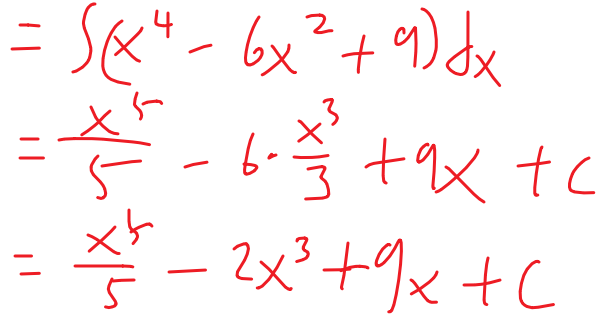 = ∫(x⁴ - 6x² + 9)dx
= x⁵/5 - 6·x³/3 + 9x + c
= x⁵/5 - 2x³ + 9x + C